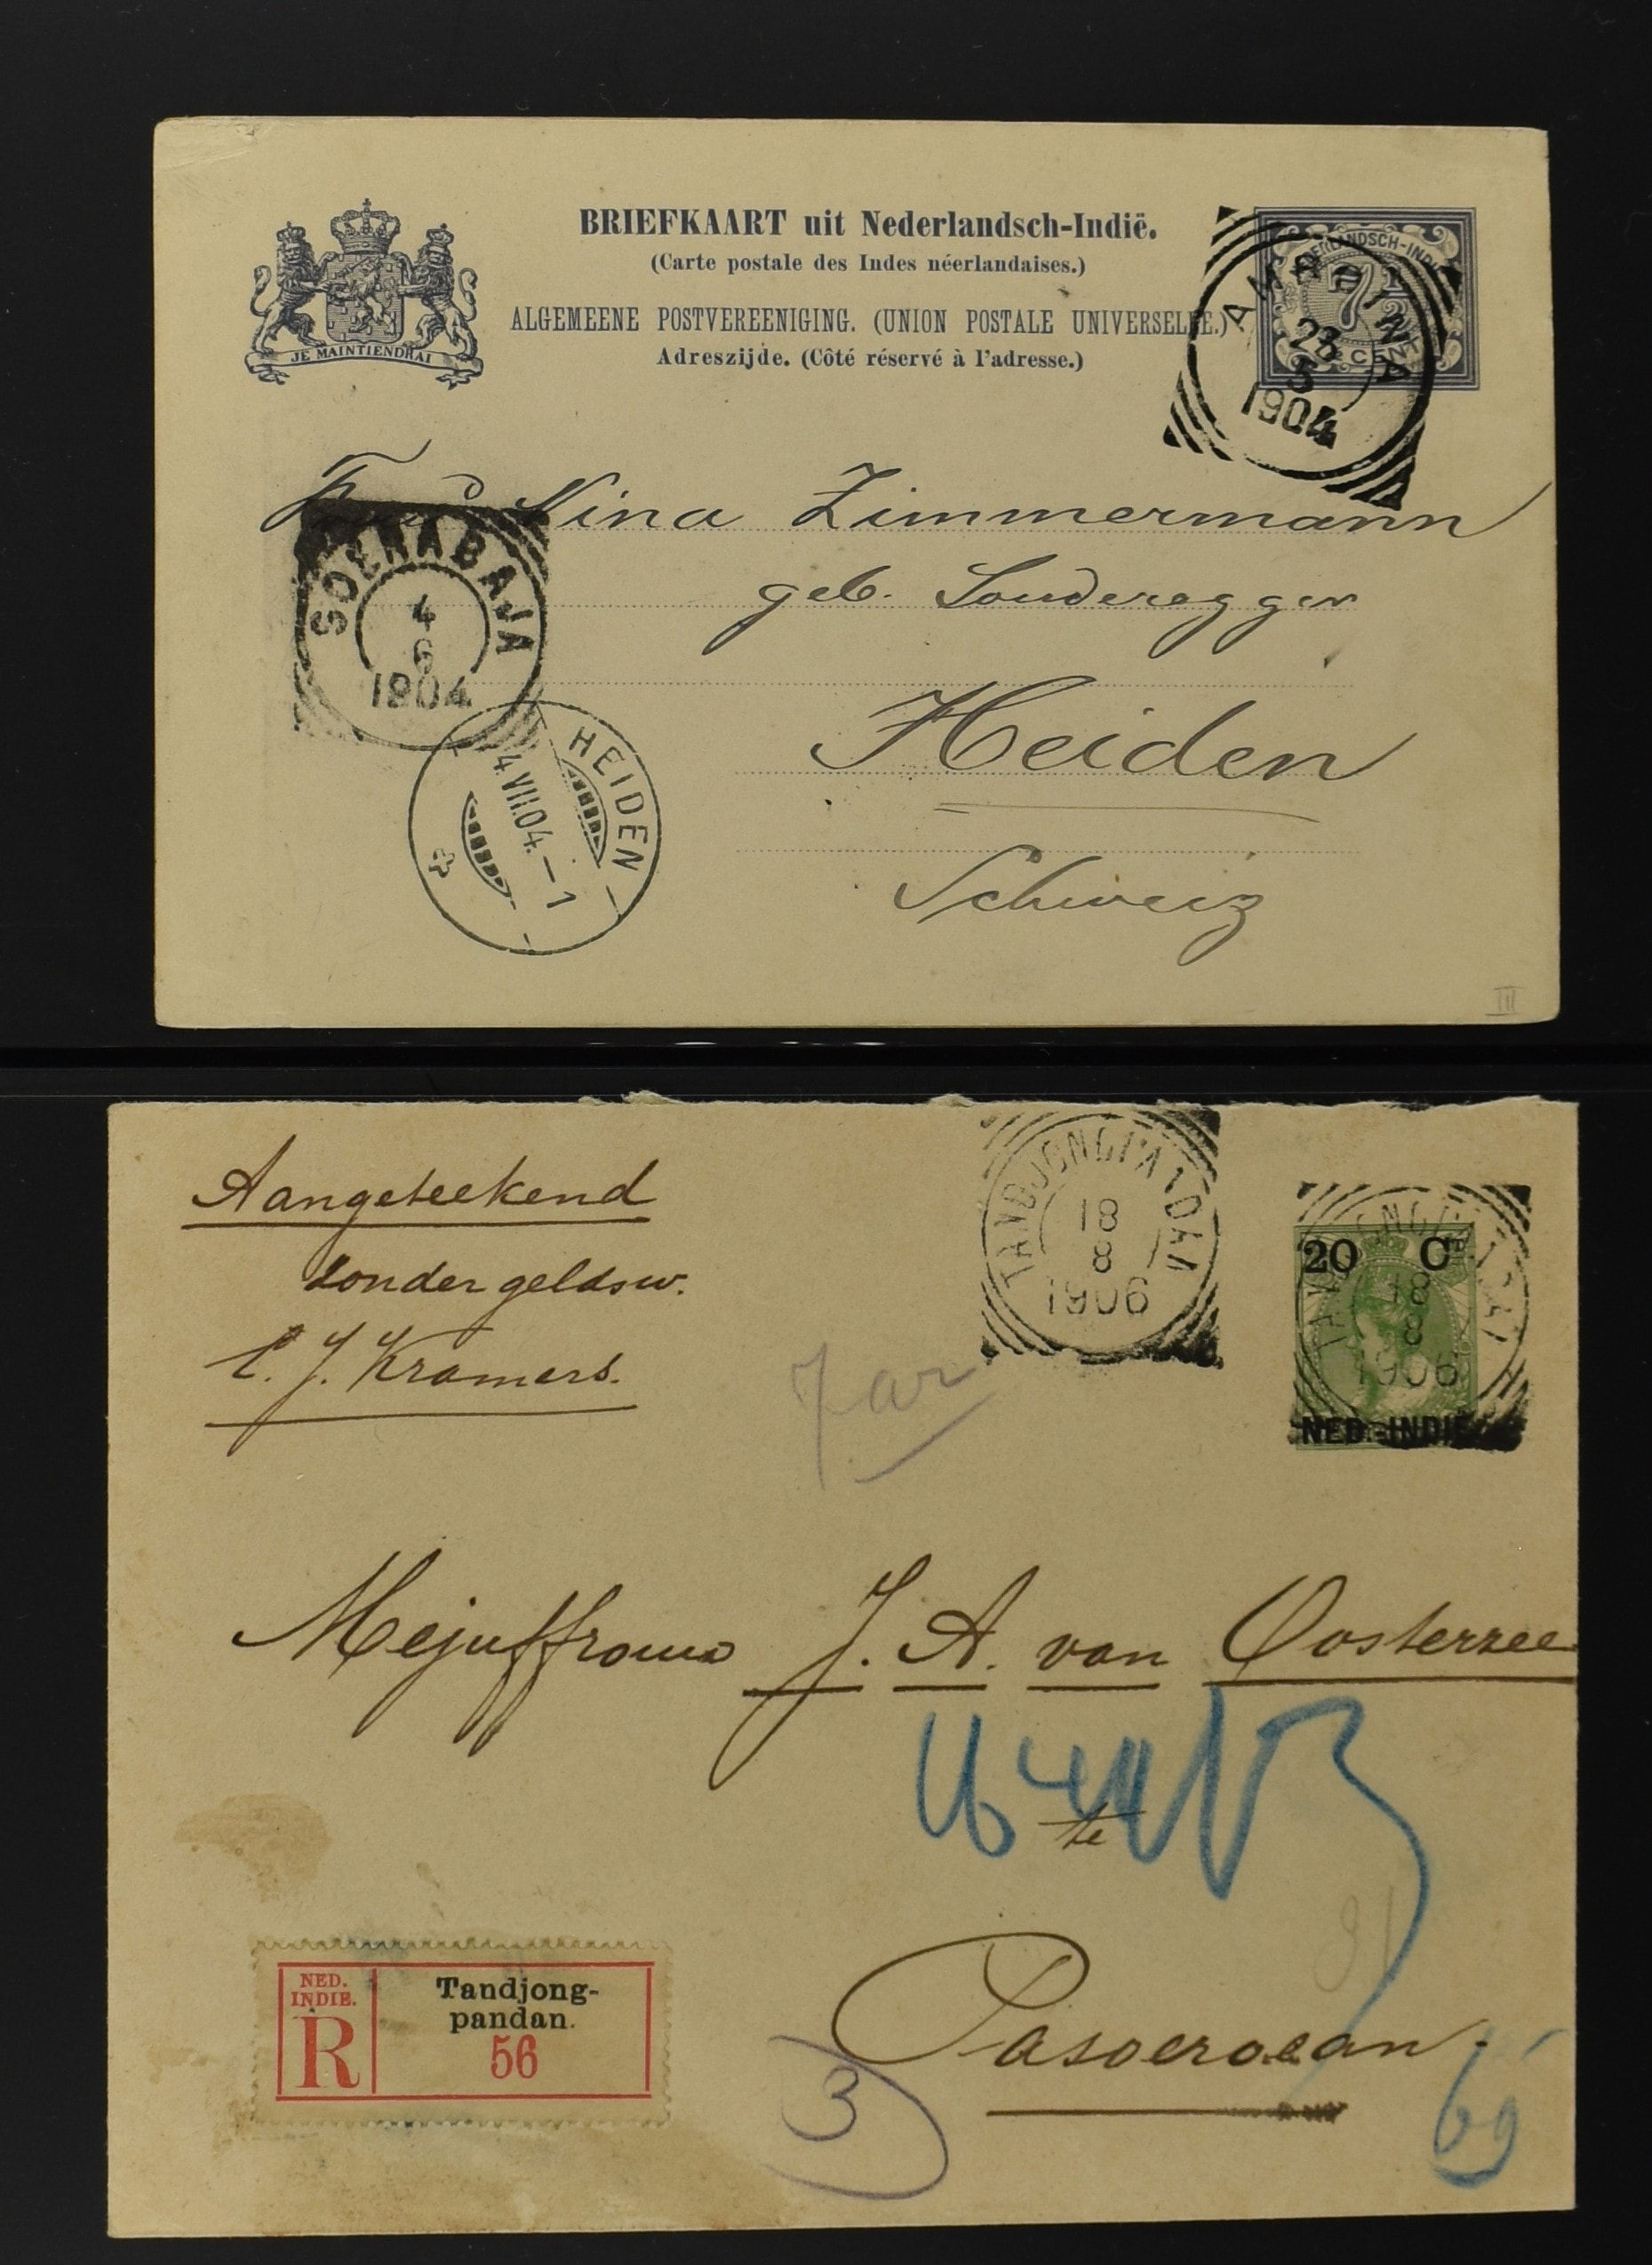 BRIEFKAART uit Nederlandsch-Indië.
(Carte postale des Indes néerlandaises.)
ALGEMEENE POSTVEREENIGING. (UNION POSTALE UNIVERSELLE.)
Adreszijde. (Côté réservé à l'adresse.)
JE MAINTIENDRAI
NEDERLANDSCH-INDIË
7½
CENT
AMBOINA
23
5
1904
Nina Zimmermann
geb. Sonderegger
Heiden
Schweiz
SOERABAJA
4
6
1904
HEIDEN
4.VII.04.–1
III
Aangeteekend
zonder geldsw.
C. J. Kramers.
TANDJONGPANDAN
18
8
1906
20 CT
NED.-INDIË
TANDJONGPANDAN
18
8
1906
Mejuffrouw J. A. van Oosterzee
te
Pasoeroean.
NED.
INDIE.
R
Tandjong-
pandan.
56
3
69
91